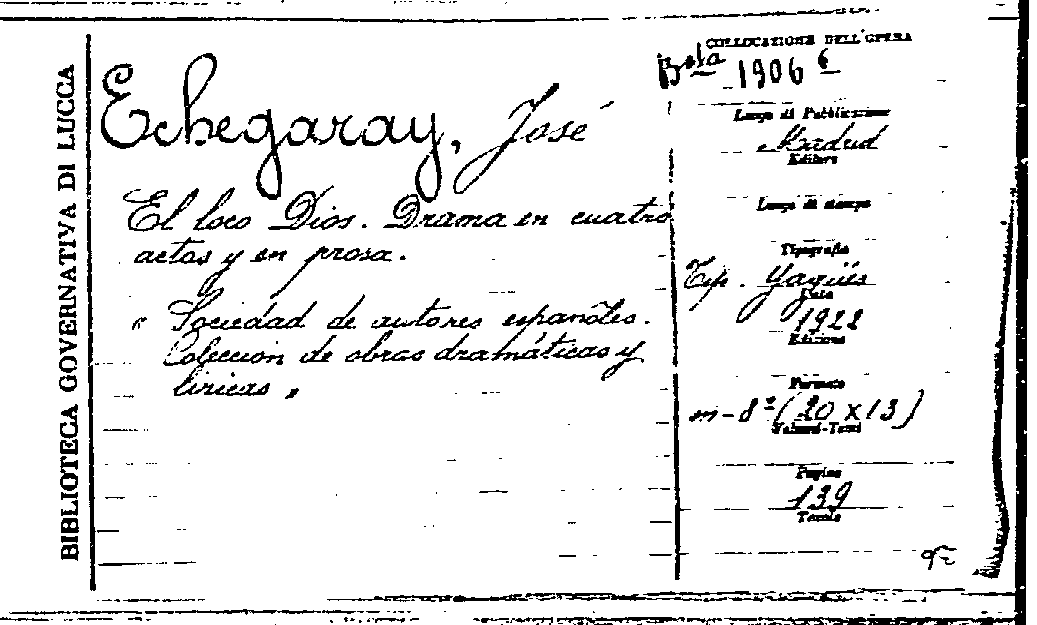 BIBLIOTECA GOVERNATIVA DI LUCCA
Echegaray, José
El loco Dios. Drama en cuatro
actos y en prosa.
"Sociedad de autores españoles.
Colección de obras dramáticas y
líricas"
COLLOCAZIONE DELL'OPERA
Bᵗᵃ 1906 6
Luogo di Pubblicazione
Madrid
Editore
Luogo di stampa
Tipografia
Tip. Yagües
Data
1922
Edizione
Formato
m-8º (20 x 13)
Volumi-Tomi
Pagine
139
Tavole